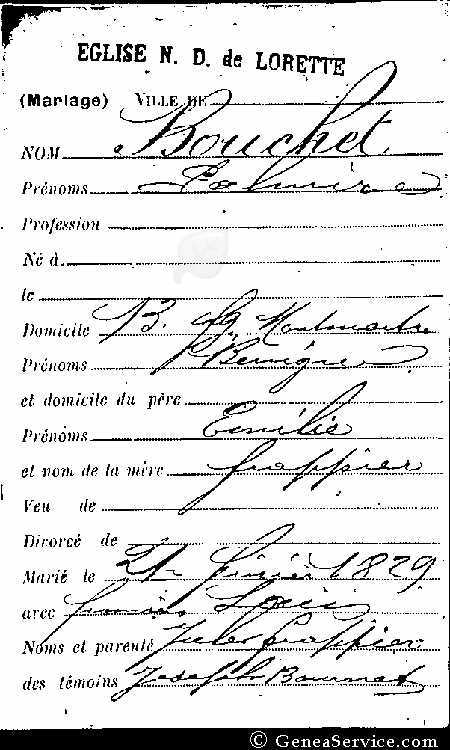 EGLISE N. D. de LORETTE
(Mariage) VILLE DE
NOM Bouchet
Prénoms
Profession
Né à
le
Domicile 13. fg. Montmartre
Prénoms Benigne
et domicile du père
Prénoms Emilie
et nom de la mère frappier
Veu de
Divorcé de
Marié le 21 février 1829
avec Louis
Noms et parenté Jules frappier
des témoins Joseph
© GeneaService.com